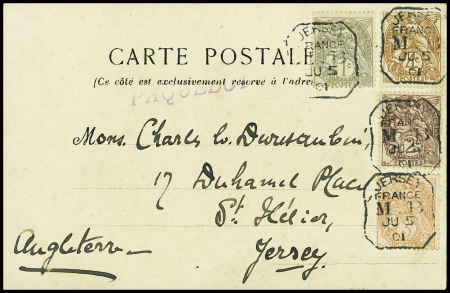 CARTE POSTALE
(Ce côté est exclusivement réservé à l'adres
PAQUEBOT
JERSEY
FRANCE
JU 5
01
JERSEY
FRANCE
M
JU 5
01
JERSEY
FRANCE
M
JU
JERSEY
FRANCE
M
JU 5
01
Mons. Charles
17 Duhamel Place
St. Hélier,
Jersey
Angleterre